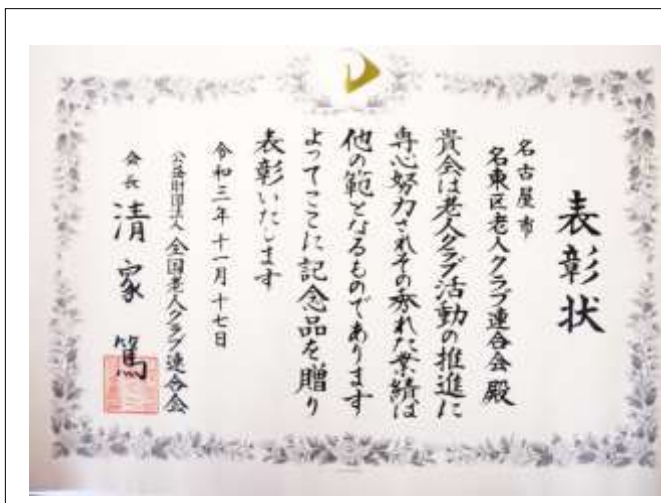 表彰状
名古屋市
名東区老人クラブ連合会 殿
貴会は老人クラブ活動の推進に
専心努力されその秀れた業績は
他の範となるものであります
よってここに記念品を贈り
表彰いたします
令和三年十一月十七日
公益財団法人 全国老人クラブ連合会
会長 清家 篤